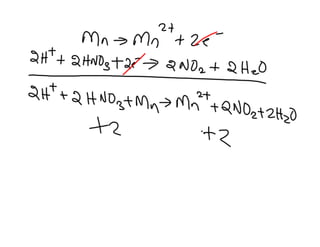 Mn → Mn²⁺ + 2e⁻
2H⁺ + 2HNO₃ + 2e⁻ → 2NO₂ + 2H₂O
2H⁺ + 2HNO₃ + Mn → Mn²⁺ + 2NO₂ + 2H₂O
+2 +2